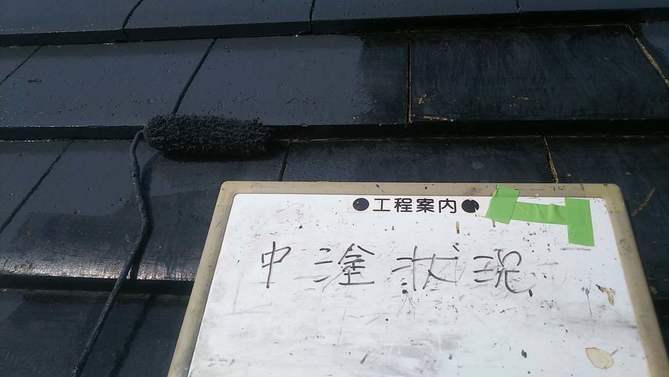 ●工程案内●
中塗状況